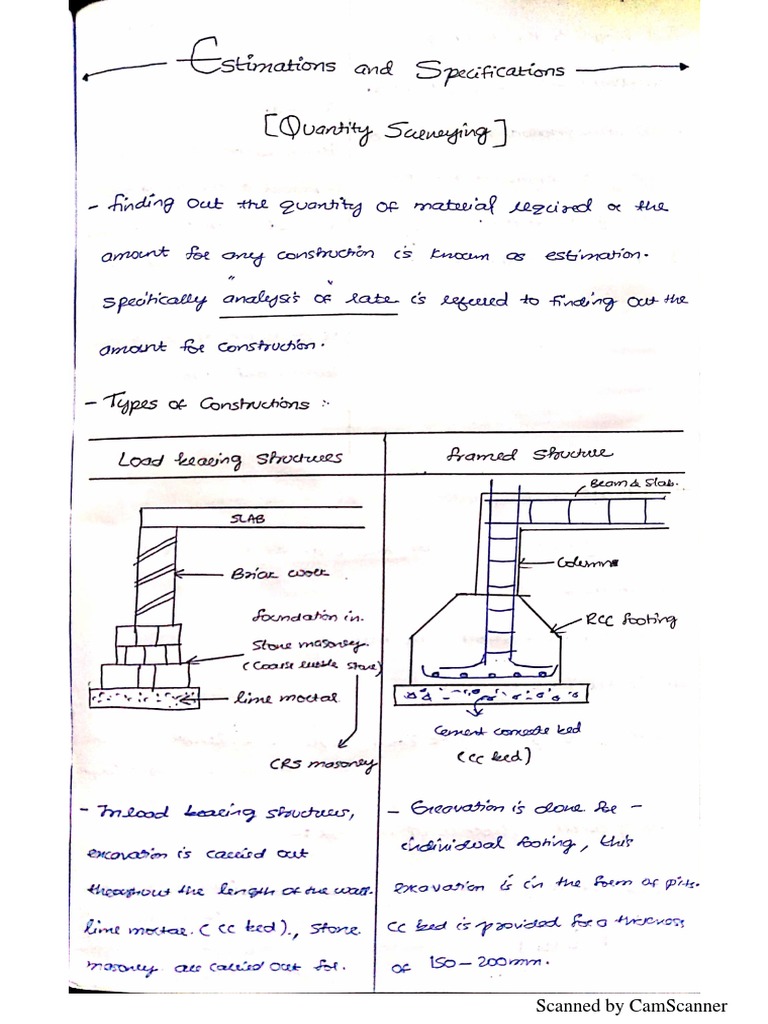 Estimations and Specifications
[Quantity Surveying]
- finding out the quantity of material required or the
amount for any construction is known as estimation.
Specifically "analysis of rate" is referred to finding out the
amount for construction.
- Types of Constructions :-
Load bearing structures
SLAB
Brick work
foundation in
stone masonry
(Coarse rubble stone)
lime mortar
CRS masonry
- In load bearing structures,
excavation is carried out
throughout the length of the wall.
lime mortar (CC bed), stone
masonry are carried out for
framed structure
Beam & Slab.
Column
RCC footing
Cement concrete bed
(CC bed)
- Excavation is done for -
individual footing, this
excavation is in the form of pits.
CC bed is provided for a thickness
of 150-200mm.
Scanned by CamScanner